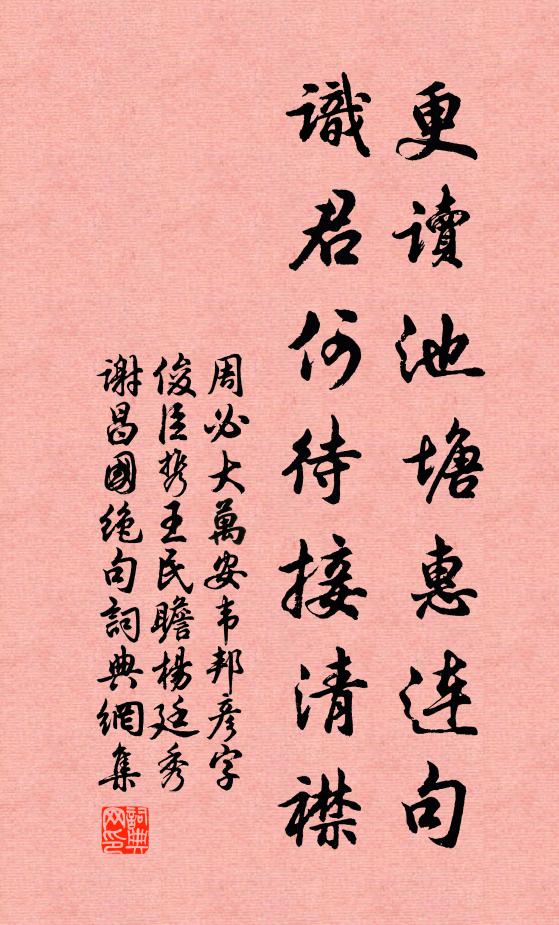 更读池塘惠连句
識君何待接清襟
周必大萬安韦邦彦字
俊臣携王民瞻楊廷秀
谢昌國绝句詞典網集
詞典网印